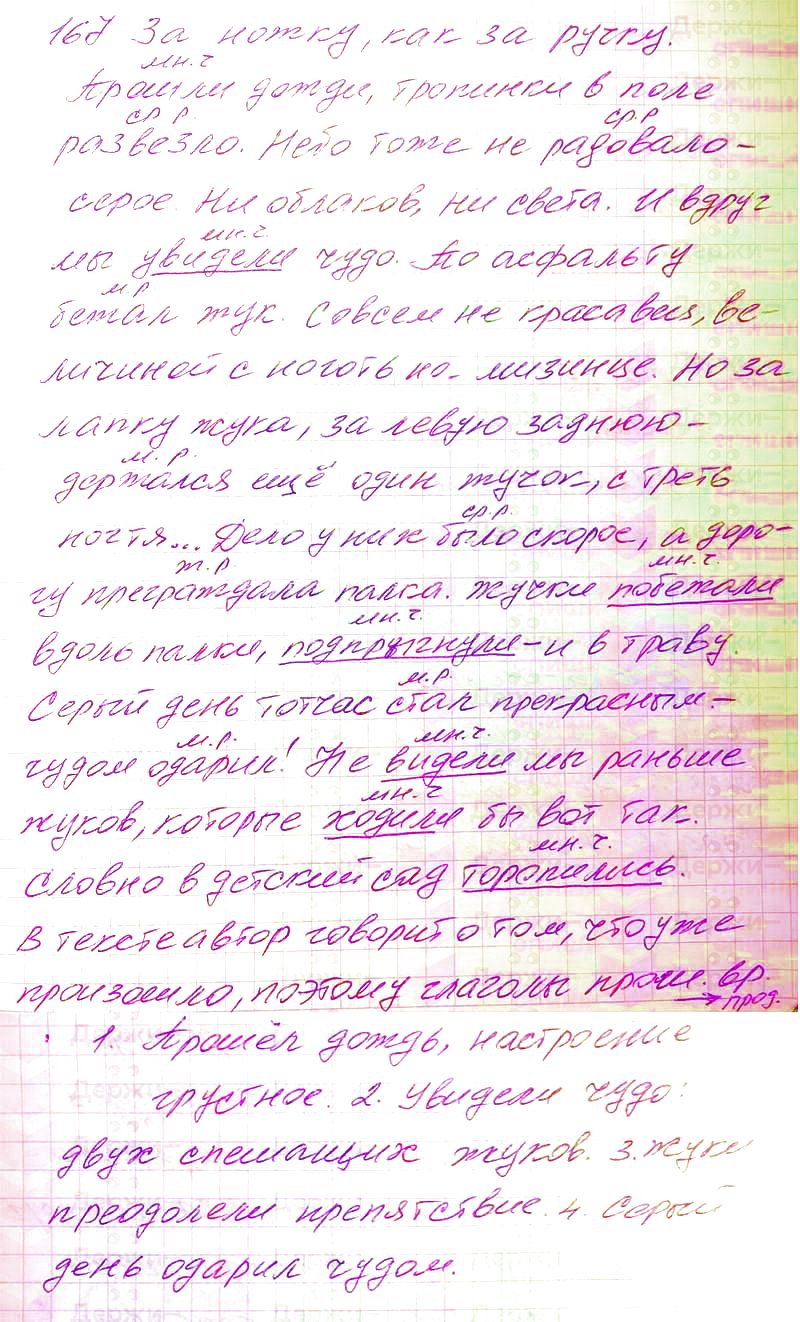 167 За ножку, как за ручку.
мн.ч
Прошли дожди, тропинки в поле
ср. р. ср.р
развезло. Небо тоже не радовало –
серое. Ни облаков, ни света. И вдруг
мн.ч.
мы увидели чудо. По асфальту
м.р
бежал жук. Совсем не красавец, ве-
личиной с ноготь на мизинце. Но за
лапку жука, за левую заднюю –
м. р.
держался ещё один жучок, с треть
ср.р.
ногтя... Дело у них было скорое, а доро-
ж.р мн.ч.
гу преграждала палка. Жучки побежали
мн.ч.
вдоль палки, подпрыгнули – и в траву.
м.р.
Серый день тотчас стал прекрасным –
м.р. мн.ч.
чудом одарил! Не видели мы раньше
мн.ч
жуков, которые ходили бы вот так.
мн.ч.
Словно в детский сад торопились.
В тексте автор говорит о том, что уже
произошло, поэтому глаголы прош. вр.
→ прод.
1. Прошёл дождь, настроение
грустное. 2. Увидели чудо:
двух спешащих жуков. 3. Жуки
преодолели препятствие. 4. Серый
день одарил чудом.